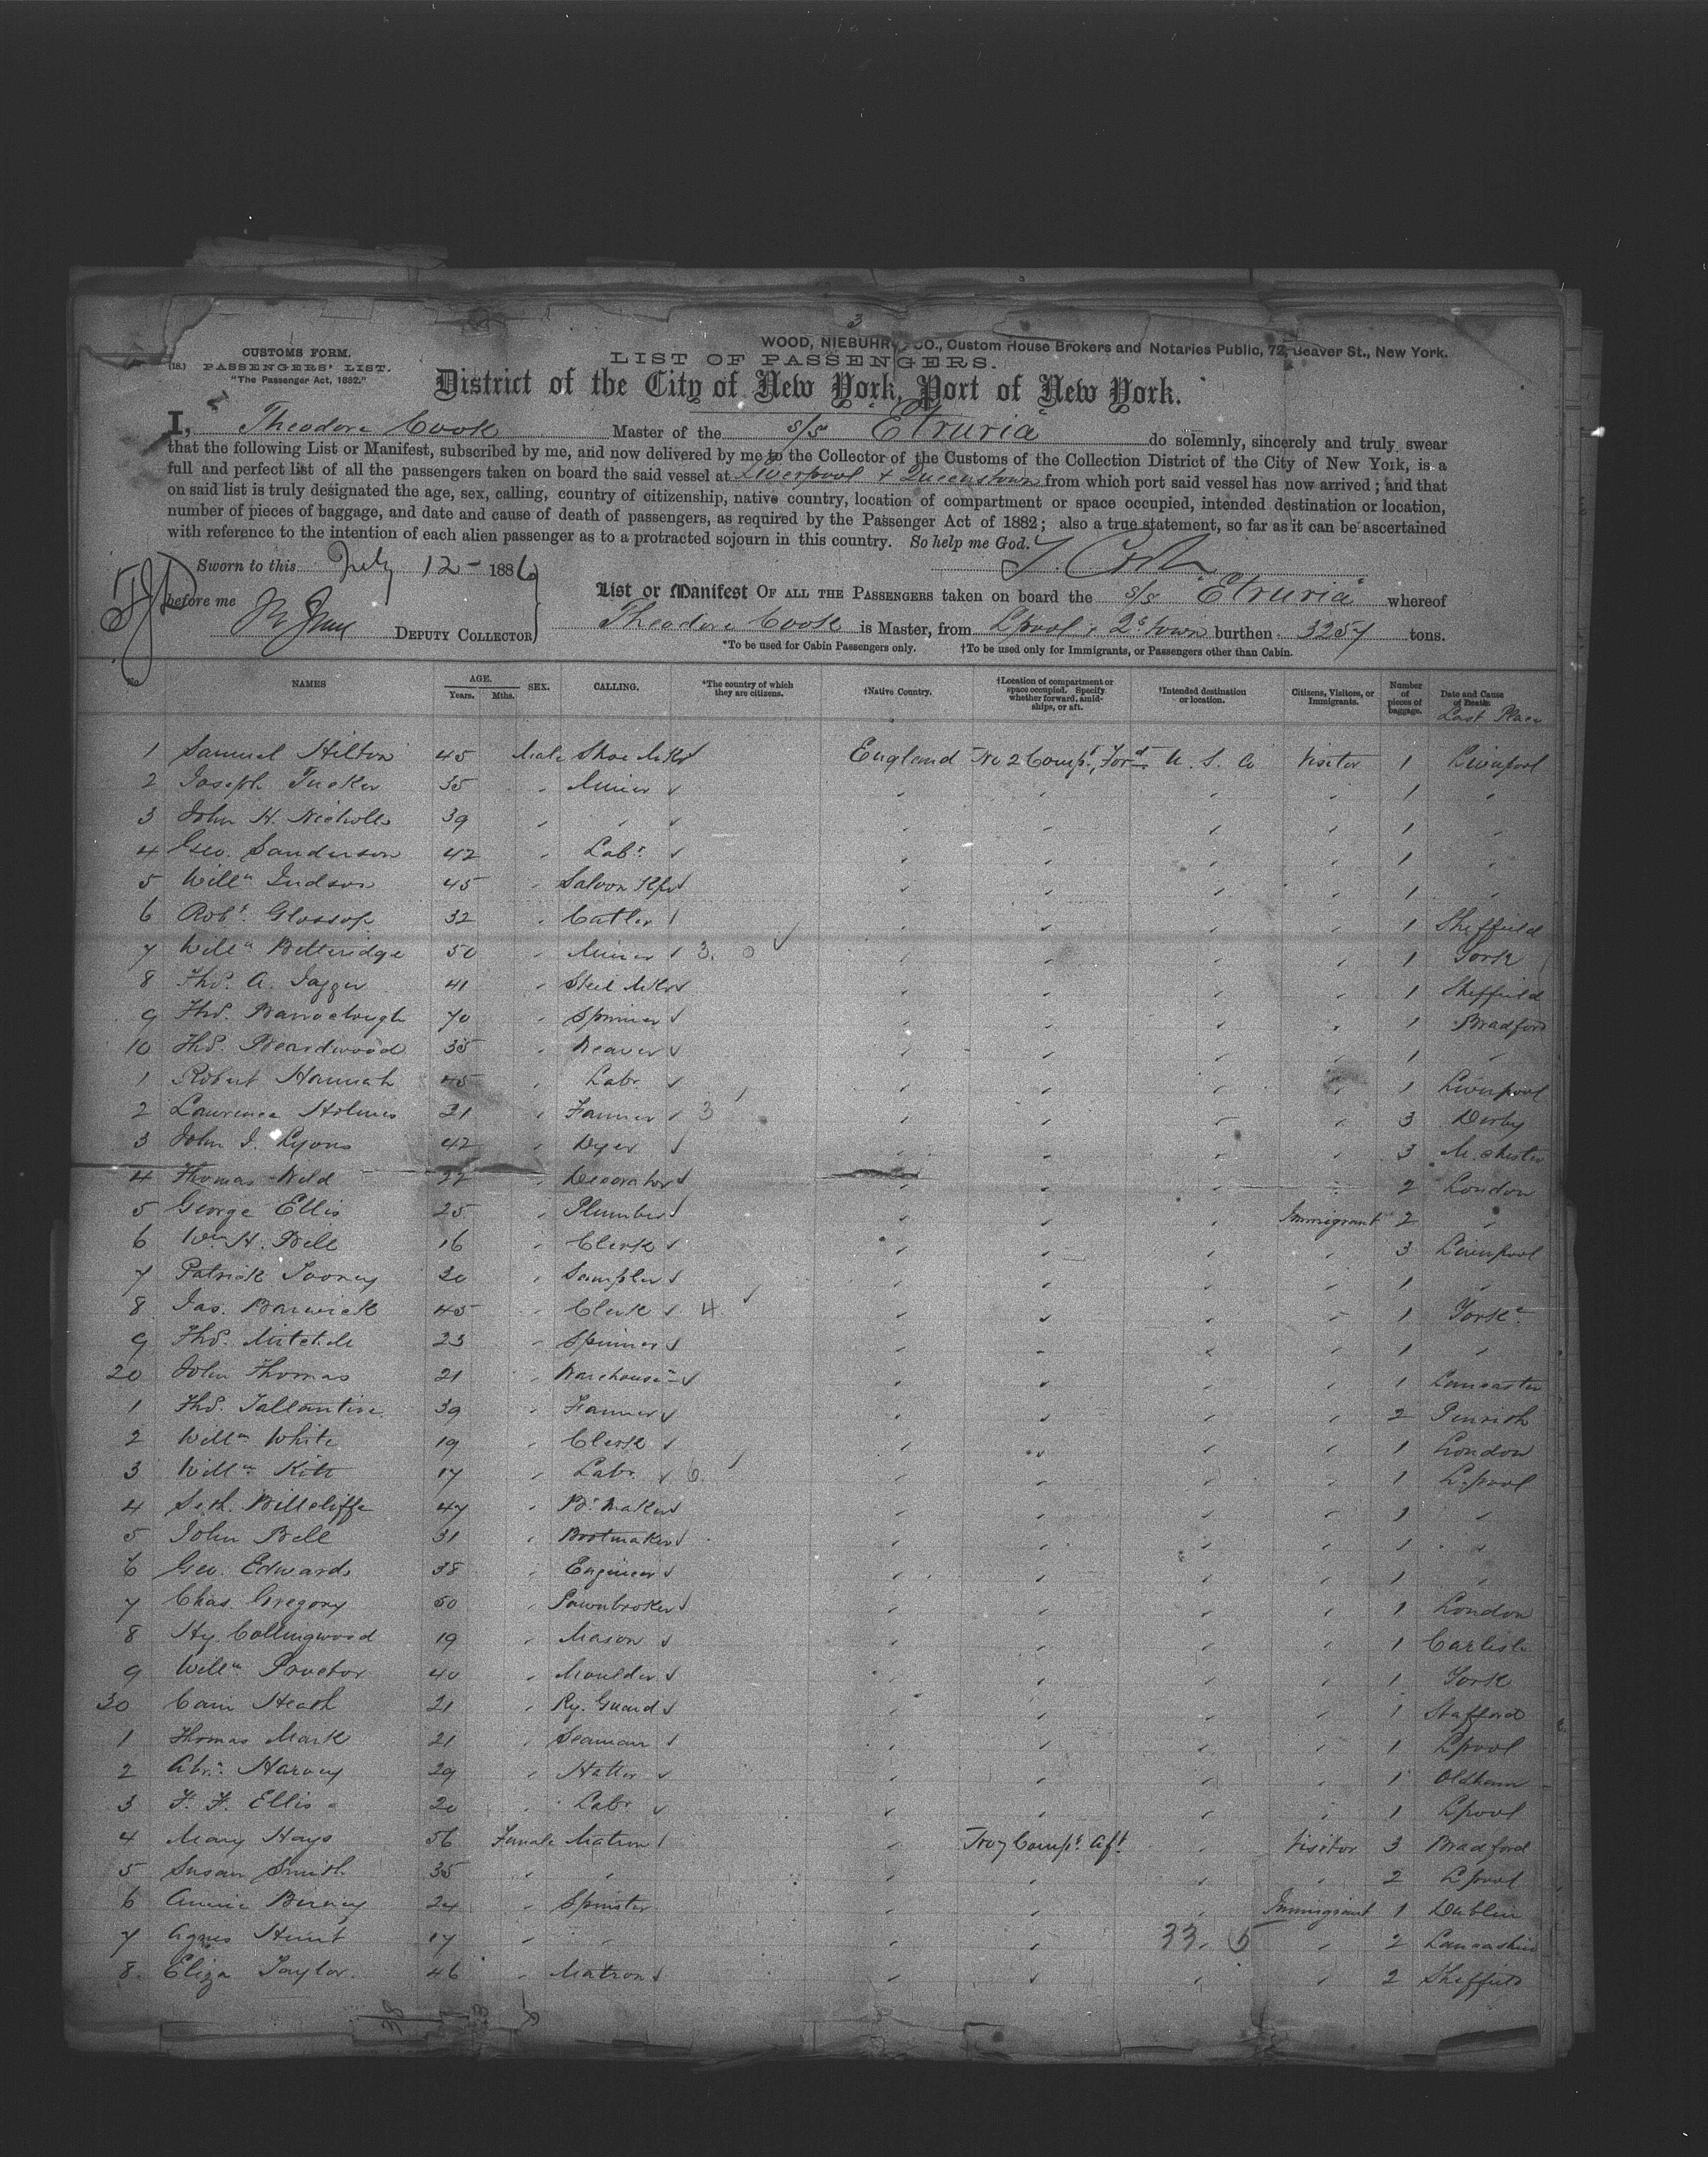 3
WOOD, NIEBUHR & CO., Custom House Brokers and Notaries Public, 72, Beaver St., New York.
CUSTOMS FORM.
LIST OF PASSENGERS.
(18.) PASSENGERS' LIST.
"The Passenger Act, 1882."
District of the City of New York, Port of New York.
I, Theodore Cook Master of the s/s Etruria do solemnly, sincerely and truly swear
that the following List or Manifest, subscribed by me, and now delivered by me to the Collector of the Customs of the Collection District of the City of New York, is a
full and perfect list of all the passengers taken on board the said vessel at Liverpool & Queenstown from which port said vessel has now arrived; and that
on said list is truly designated the age, sex, calling, country of citizenship, native country, location of compartment or space occupied, intended destination or location,
number of pieces of baggage, and date and cause of death of passengers, as required by the Passenger Act of 1882; also a true statement, so far as it can be ascertained
with reference to the intention of each alien passenger as to a protracted sojourn in this country. So help me God.
Sworn to this July 12 - 1886 T. Cook
before me
List or Manifest OF ALL THE PASSENGERS taken on board the s/s "Etruria" whereof
DEPUTY COLLECTOR
Theodore Cook is Master, from Lpool & Qs town burthen 3257 tons.
*To be used for Cabin Passengers only. †To be used only for Immigrants, or Passengers other than Cabin.
No. NAMES AGE. Years. Mths. SEX. CALLING. *The country of which they are citizens. †Native Country. †Location of compartment or space occupied. Specify whether forward, amidships, or aft. †Intended destination or location. Citizens, Visitors, or Immigrants. Number of pieces of baggage. Date and Cause of Death. Last Place
1 Samuel Hilton 45 Male Shoe Mkr England No 2 Compt. Ford U. S. A Visitor 1 Liverpool
2 Joseph Tucker 35 " Miner " " " " 1 "
3 John H. Nicholls 39 " " " " " " 1 "
4 Geo. Sanderson 42 " Labr " " " " 1 "
5 Willm Judson 45 " Saloon Kpr " " " " 1 "
6 Robt. Glossop 32 " Cutler " " " " 1 Sheffield
7 Willm Betteridge 50 " Miner 3. 0 " " " " 1 York
8 Thos. A. Jagger 41 " Steel Mkr " " " " 1 Sheffield
9 Thos. Barraclough 70 " Spinner " " " " 1 Bradford
10 Thos. Beardwood 35 " Weaver " " " " 1 "
1 Robert Hannah 45 " Labr " " " " 1 Liverpool
2 Lawrence Holmes 21 " Farmer 3 " " " " 3 Derby
3 John J. Lyons 42 " Dyer " " " " 3 M.chester
4 Thomas Weld 22 " Decorator " " " " 2 London
5 George Ellis 25 " Plumber " " " Immigrant 2 "
6 Wm H. Bell 16 " Clerk " " " " 3 Liverpool
7 Patrick Tooney 20 " Sampler " " " " 1 "
8 Jas. Barwick 45 " Clerk 4 " " " " 1 Yorke
9 Thos. Mitchell 23 " Spinner " " " " 1 "
20 John Thomas 21 " Warehouse " " " " 1 Lancaster
1 Thos. Tallantire 39 " Farmer " " " " 2 Penrith
2 Willm White 19 " Clerk " " " " 1 London
3 Willm Kitt 17 " Labr 6 " " " " 1 L.pool
4 Seth Billcliffe 47 " Bt. Maker " " " " 1 "
5 John Bell 31 " Bootmaker " " " " 1 "
6 Geo. Edwards 38 " Engineer " " " " 1 "
7 Chas. Gregory 50 " Pawnbroker " " " " 1 London
8 Hy. Collingwood 19 " Mason " " " " 1 Carlisle
9 Willm Proctor 40 " Moulder " " " " 1 York
30 Cain Heath 21 " Ry. Guard " " " " 1 Stafford
1 Thomas Mark 21 " Seaman " " " " 1 Lpool
2 Abrm. Harvey 29 " Hatter " " " " 1 Oldham
3 F. F. Ellis 20 " Labr " " " " 1 Lpool
4 Mary Hays 56 Female Matron " No 7 Compt. Aft. " Visitor 3 Bradford
5 Susan Smith 35 " " " " " " 2 Lpool
6 Annie Birney 24 " Spinster " " " Immigrant 1 Dublin
7 Agnes Hunt 17 " " " " 33. 5 " 2 Lancashire
8. Eliza Taylor. 46 " Matron " " " " 2 Sheffield